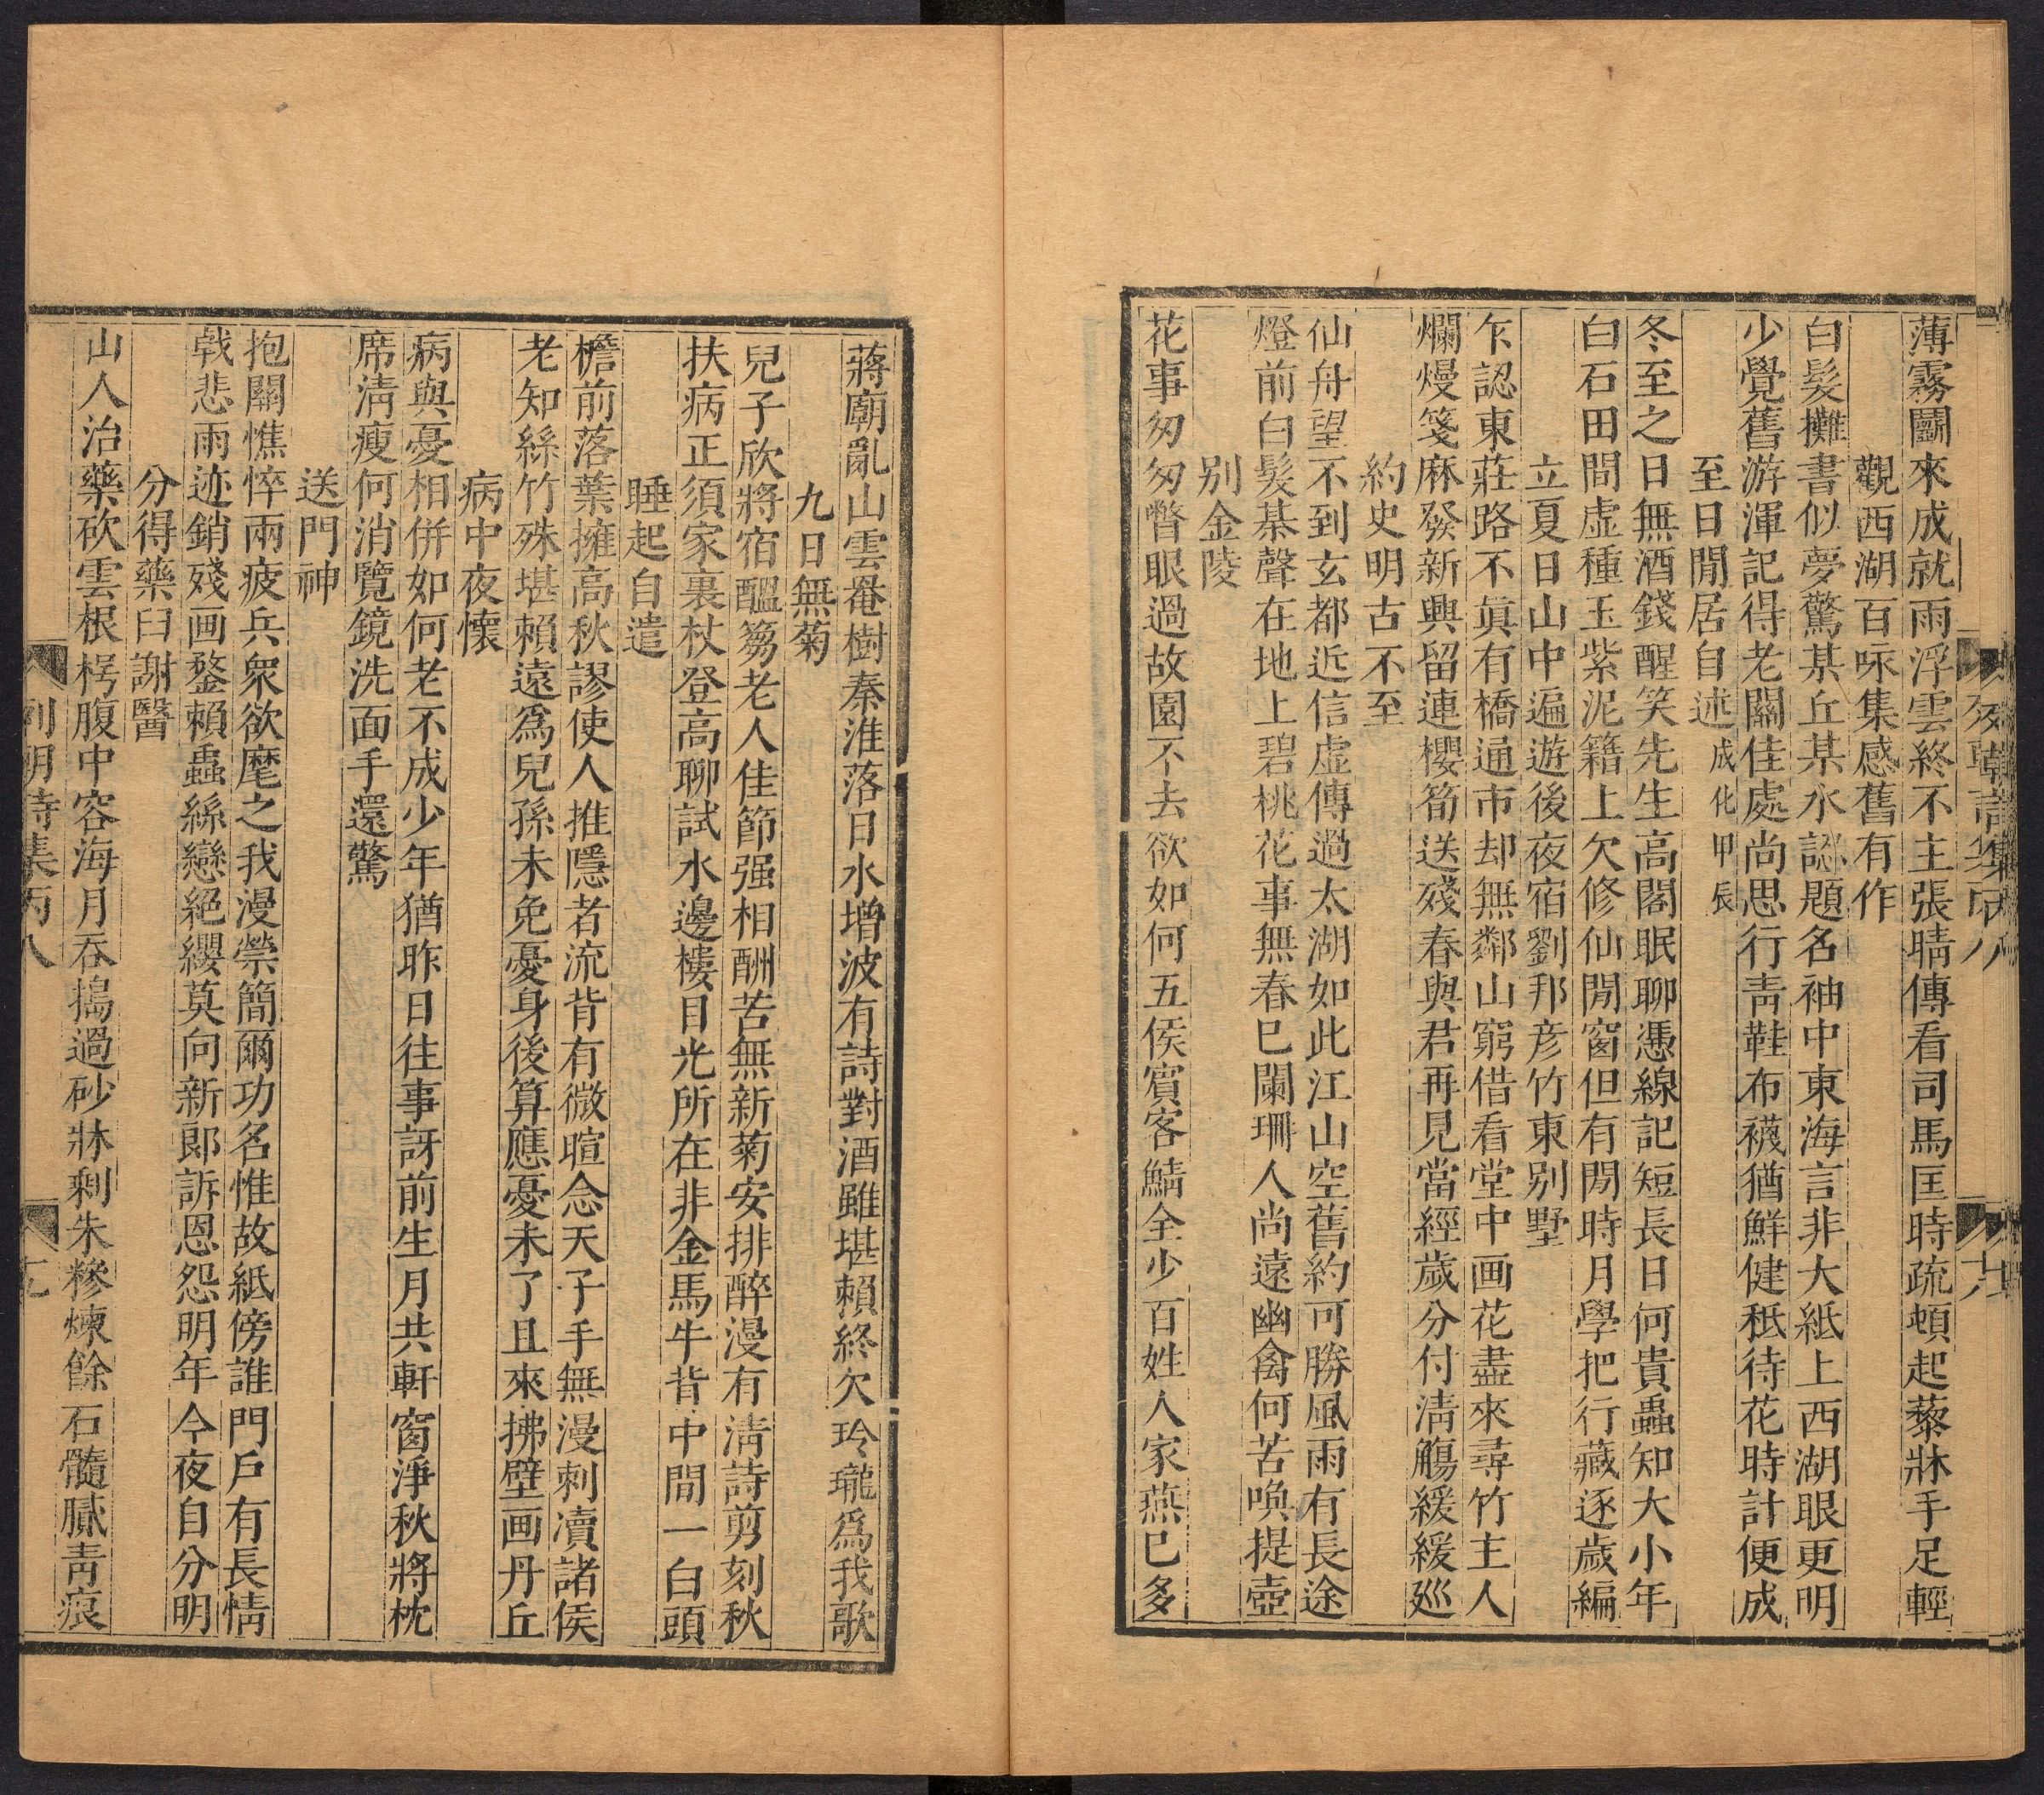 薄霧鬭來成就雨浮雲終不主張晴傳看司馬匡時疏頓起藜牀手足輕
觀西湖百咏集感舊有作
白髮攤書似夢驚某丘某水認題名袖中東海言非大紙上西湖眼更明
少覺舊游渾記得老關佳處尚思行靑鞋布襪猶鮮健秪待花時計便成
至日閒居自述成化甲辰
冬至之日無酒錢醒笑先生高閣眠聊憑線記短長日何貴蟲知大小年
白石田間虛種玉紫泥籍上欠修仙閒窗但有閒時月學把行藏逐歲編
立夏日山中遍遊後夜宿劉邦彥竹東別墅
乍認東莊路不眞有橋通市却無鄰山窮借看堂中画花盡來尋竹主人
爛熳箋麻發新興留連櫻筍送殘春與君再見當經歲分付淸觴緩緩廵
約史明古不至
仙舟望不到玄都近信虛傳過太湖如此江山空舊約可勝風雨有長途
燈前白髮棊聲在地上碧桃花事無春巳闌珊人尚遠幽禽何苦喚提壺
別金陵
花事匆匆瞥眼過故園不去欲如何五侯賓客鯖全少百姓人家燕巳多
蔣廟亂山雲罨樹秦淮落日水增波有詩對酒雖堪賴終欠玲瓏爲我歌
九日無菊
兒子欣將宿醞篘老人佳節强相酬苦無新菊安排醉漫有淸詩剪刻秋
扶病正須家裏杖登高聊試水邊樓目光所在非金馬牛背中間一白頭
睡起自遣
檐前落葉擁高秋謬使人推隱者流背有微暄念天子手無漫刺瀆諸侯
老知絲竹殊堪賴遠爲兒孫未免憂身後算應憂未了且來拂壁画丹丘
病中夜懷
病與憂相併如何老不成少年猶昨日往事訝前生月共軒窗淨秋將枕
席淸瘦何消覽鏡洗面手還驚
送門神
抱關憔悴兩疲兵衆欲麾之我漫縈簡爾功名惟故紙傍誰門戶有長情
戟悲雨迹銷殘画鍪賴蟲絲戀絕纓莫向新郞訴恩怨明年今夜自分明
分得藥臼謝醫
山人治藥砍雲根樗腹中容海月吞搗過砂牀剩朱糝煉餘石髓膩靑痕
列朝詩集丙八